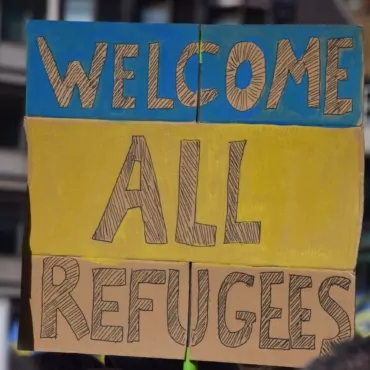 WELCOME
ALL
REFUGEES